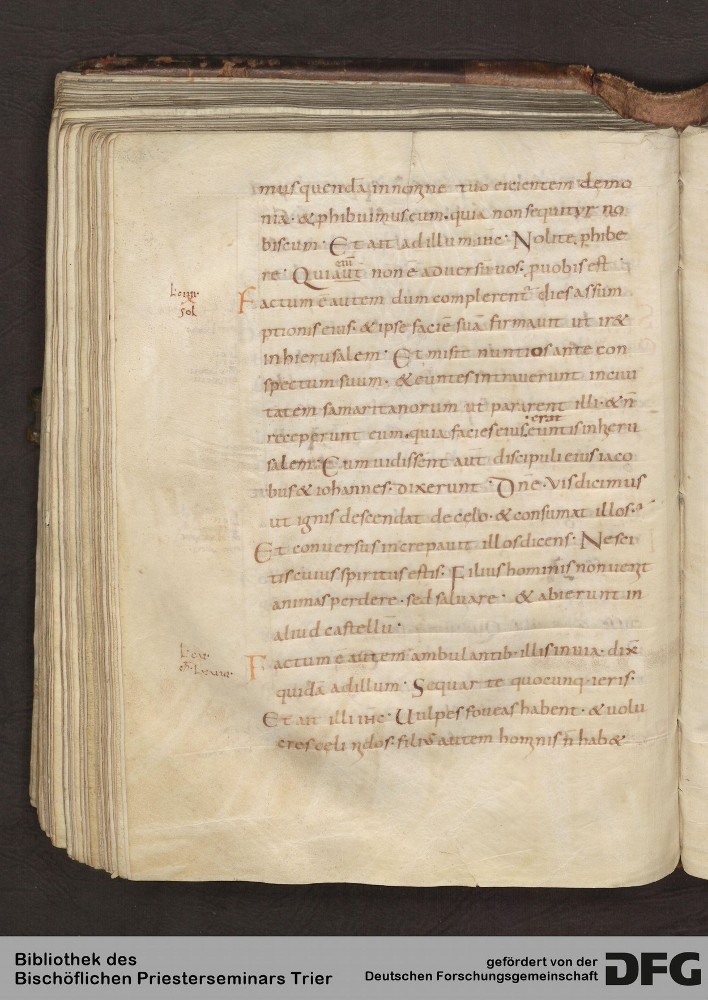 mus quendā in nomine tuo eicientem demo
nia · & phibuimus eum · quia non sequitur no
biscum · Et ait ad illum ihc · Nolite phibe
re · Qui aut non ē adversū vos · p uobis est ·
enī
Factum ē autem dum complerent dies assum
sol
ptionis eius · & ipse faciē suā firmauit ut ir&
in hierusalem · Et misit nuntios ante con
spectum suum · & euntes intrauerunt in ciui
tatem samaritanorum ut pararent illi · & ñ
receperunt eum · quia facies eius euntis in heru
erat
salem · Cum uidissent aut discipuli eius iaco
bus & iohannes · dixerunt · Dne · Vis dicimus
ut ignis descendat de celo · & consumat illos ·
Et conuersus increpauit illos dicens · Nesci
tis cuius spiritus estis · Filius hominis non uenit
animas perdere · sed saluare · & abierunt in
aliud castellū ·
Factum ē autem ambulantib · illis in uia · dix
quidā ad illum · Sequar te quocunq · ieris ·
Et ait illi ihc · Uulpes foueas habent · & uolu
cres celi nidos · filiꝰ autem hominis ñ hab&
Bibliothek des
Bischöflichen Priesterseminars Trier
gefördert von der
Deutschen Forschungsgemeinschaft
DFG